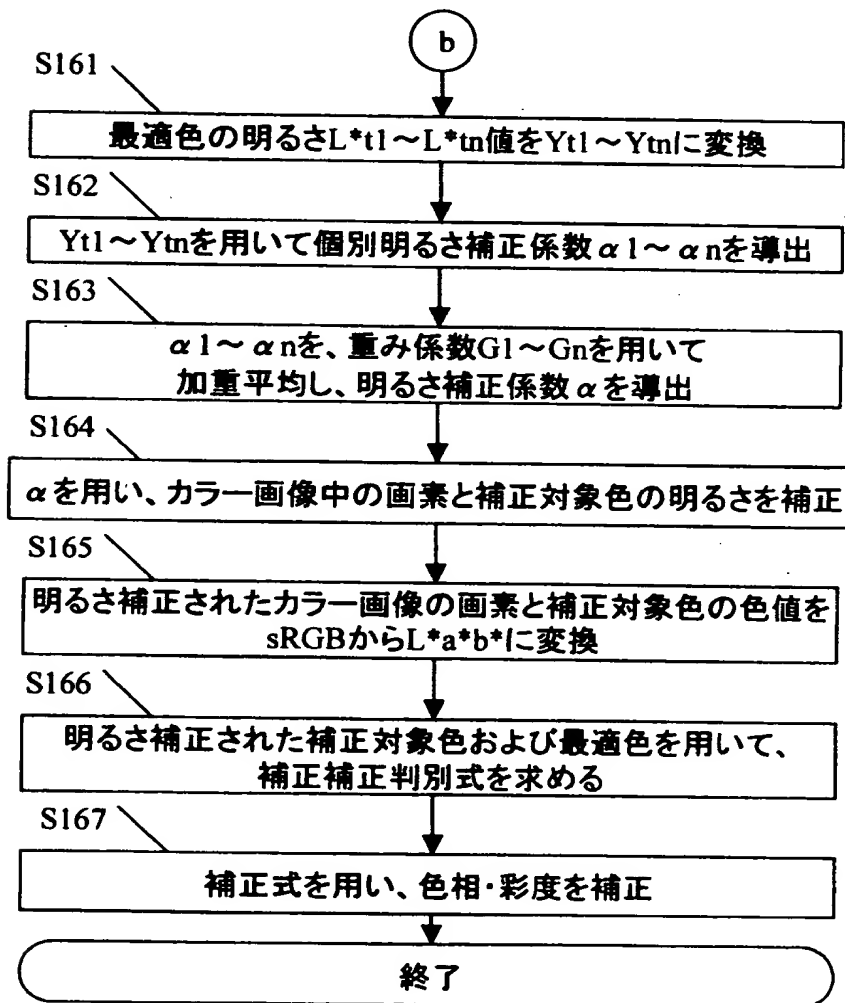 b
S161
最適色の明るさL*t1～L*tn値をYt1～Ytnに変換
S162
Yt1～Ytnを用いて個別明るさ補正係数α1～αnを導出
S163
α1～αnを、重み係数G1～Gnを用いて
加重平均し、明るさ補正係数αを導出
S164
αを用い、カラー画像中の画素と補正対象色の明るさを補正
S165
明るさ補正されたカラー画像の画素と補正対象色の色値を
sRGBからL*a*b*に変換
S166
明るさ補正された補正対象色および最適色を用いて、
補正補正判別式を求める
S167
補正式を用い、色相・彩度を補正
終了